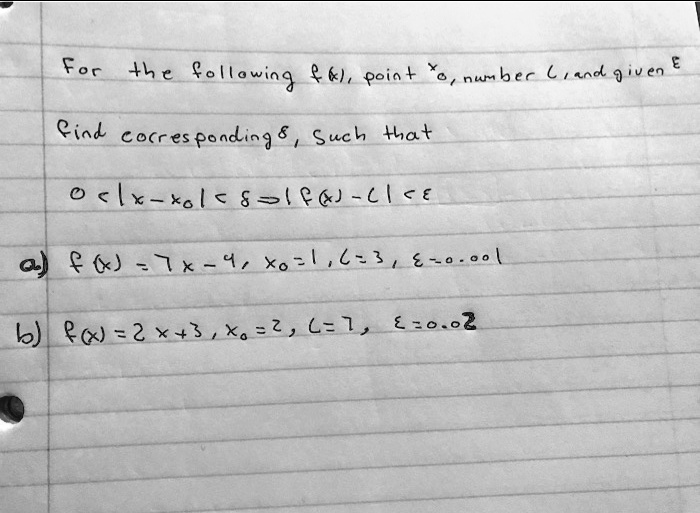 For the following f(x), point x₀, number L, and given ε
find corresponding δ, such that
0 < |x - x₀| < δ ⇒ |f(x) - L| < ε
a) f(x) = 7x - 4, x₀ = 1, L = 3, ε = 0.001
b) f(x) = 2x + 3, x₀ = 2, L = 7, ε = 0.02